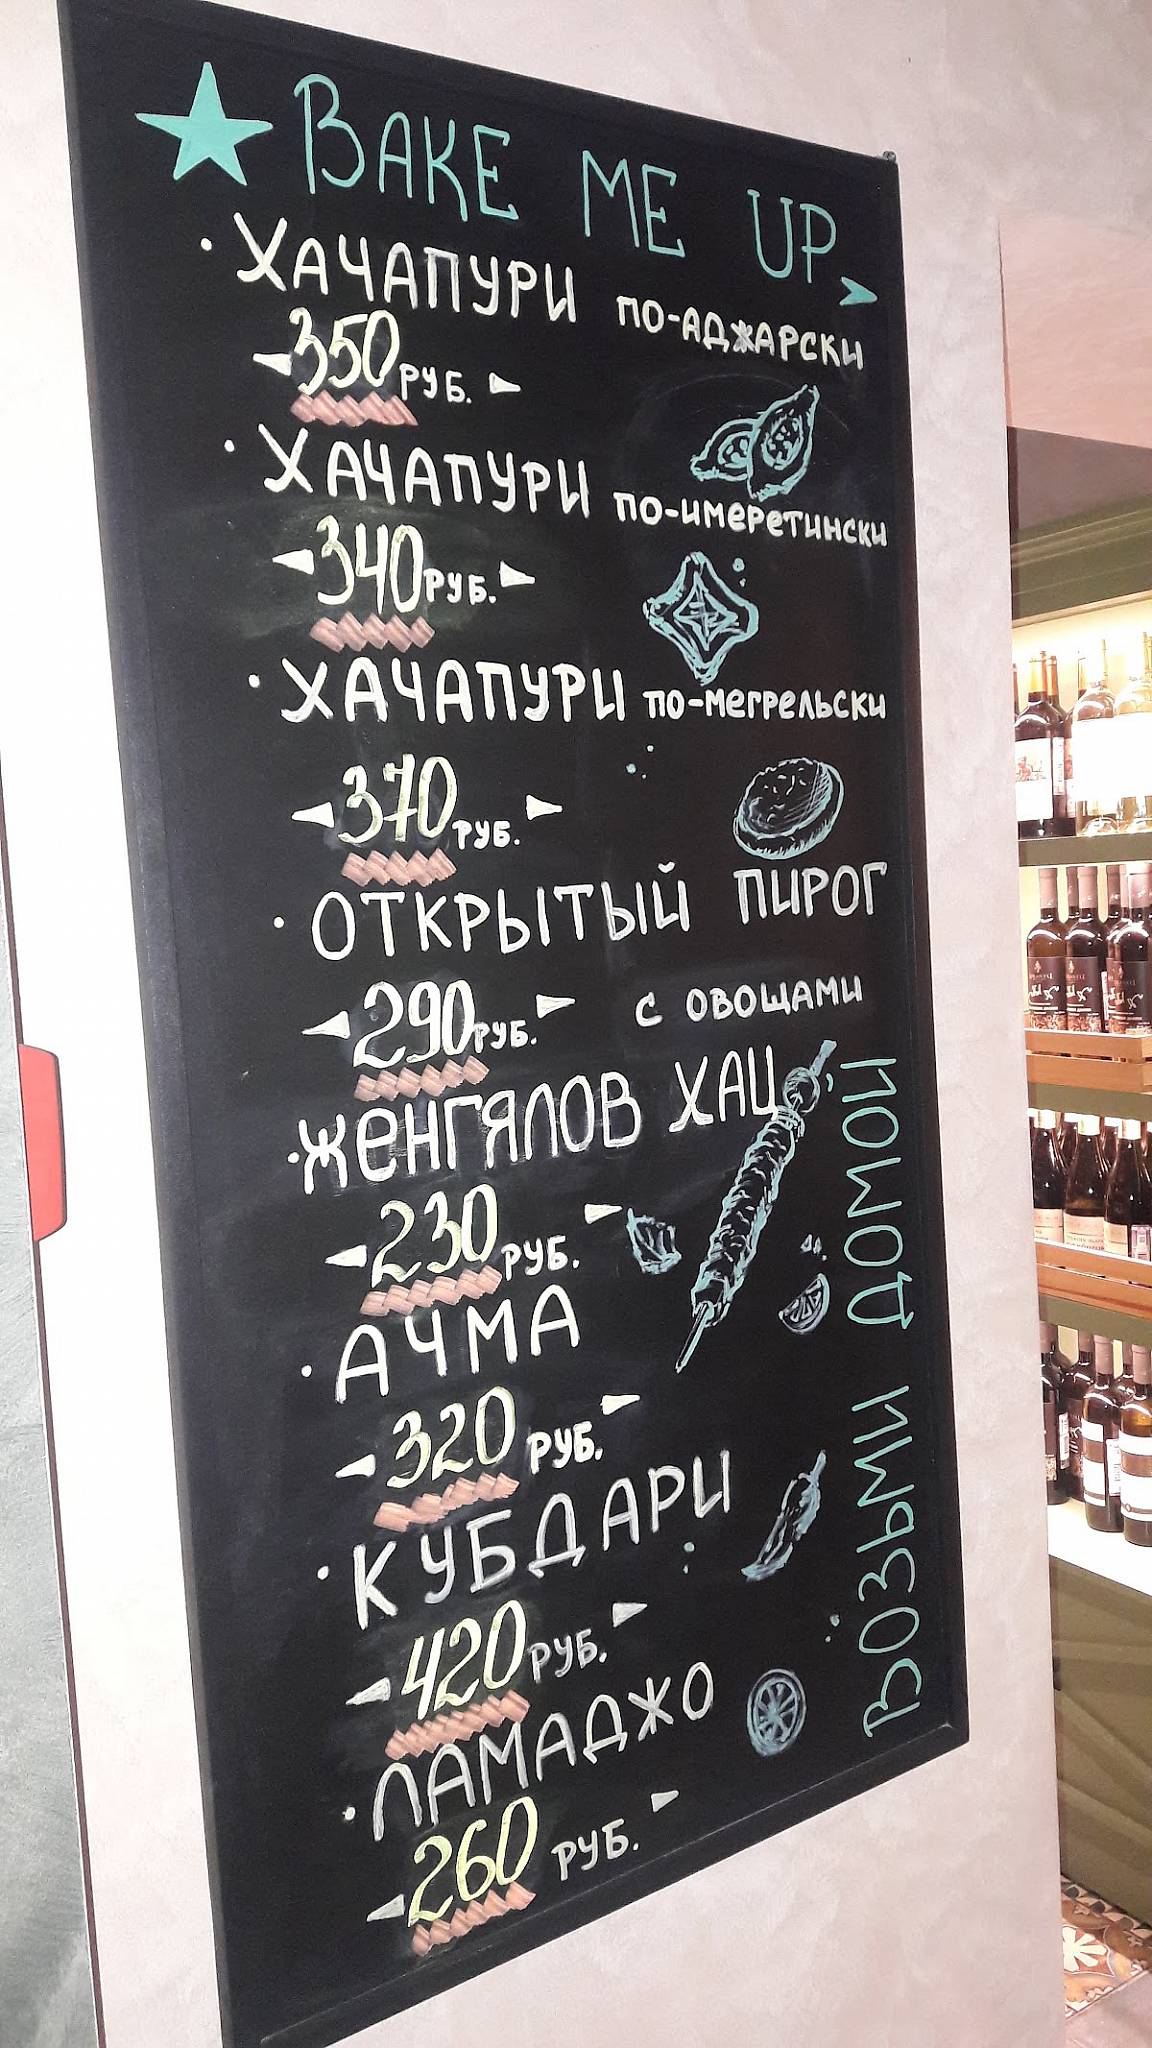 BAKE ME UP
ХАЧАПУРИ ПО-АДЖАРСКИ
350 РУБ.
ХАЧАПУРИ ПО-ИМЕРЕТИНСКИ
340 РУБ.
ХАЧАПУРИ ПО-МЕГРЕЛЬСКИ
370 РУБ.
ОТКРЫТЫЙ ПИРОГ
290 РУБ. С ОВОЩАМИ
ЖЕНГЯЛОВ ХАЦ
230 РУБ.
АЧМА
320 РУБ.
КУБДАРИ
420 РУБ.
ЛАМАДЖО
260 РУБ.
ВОЗЬМИ ДОМОЙ